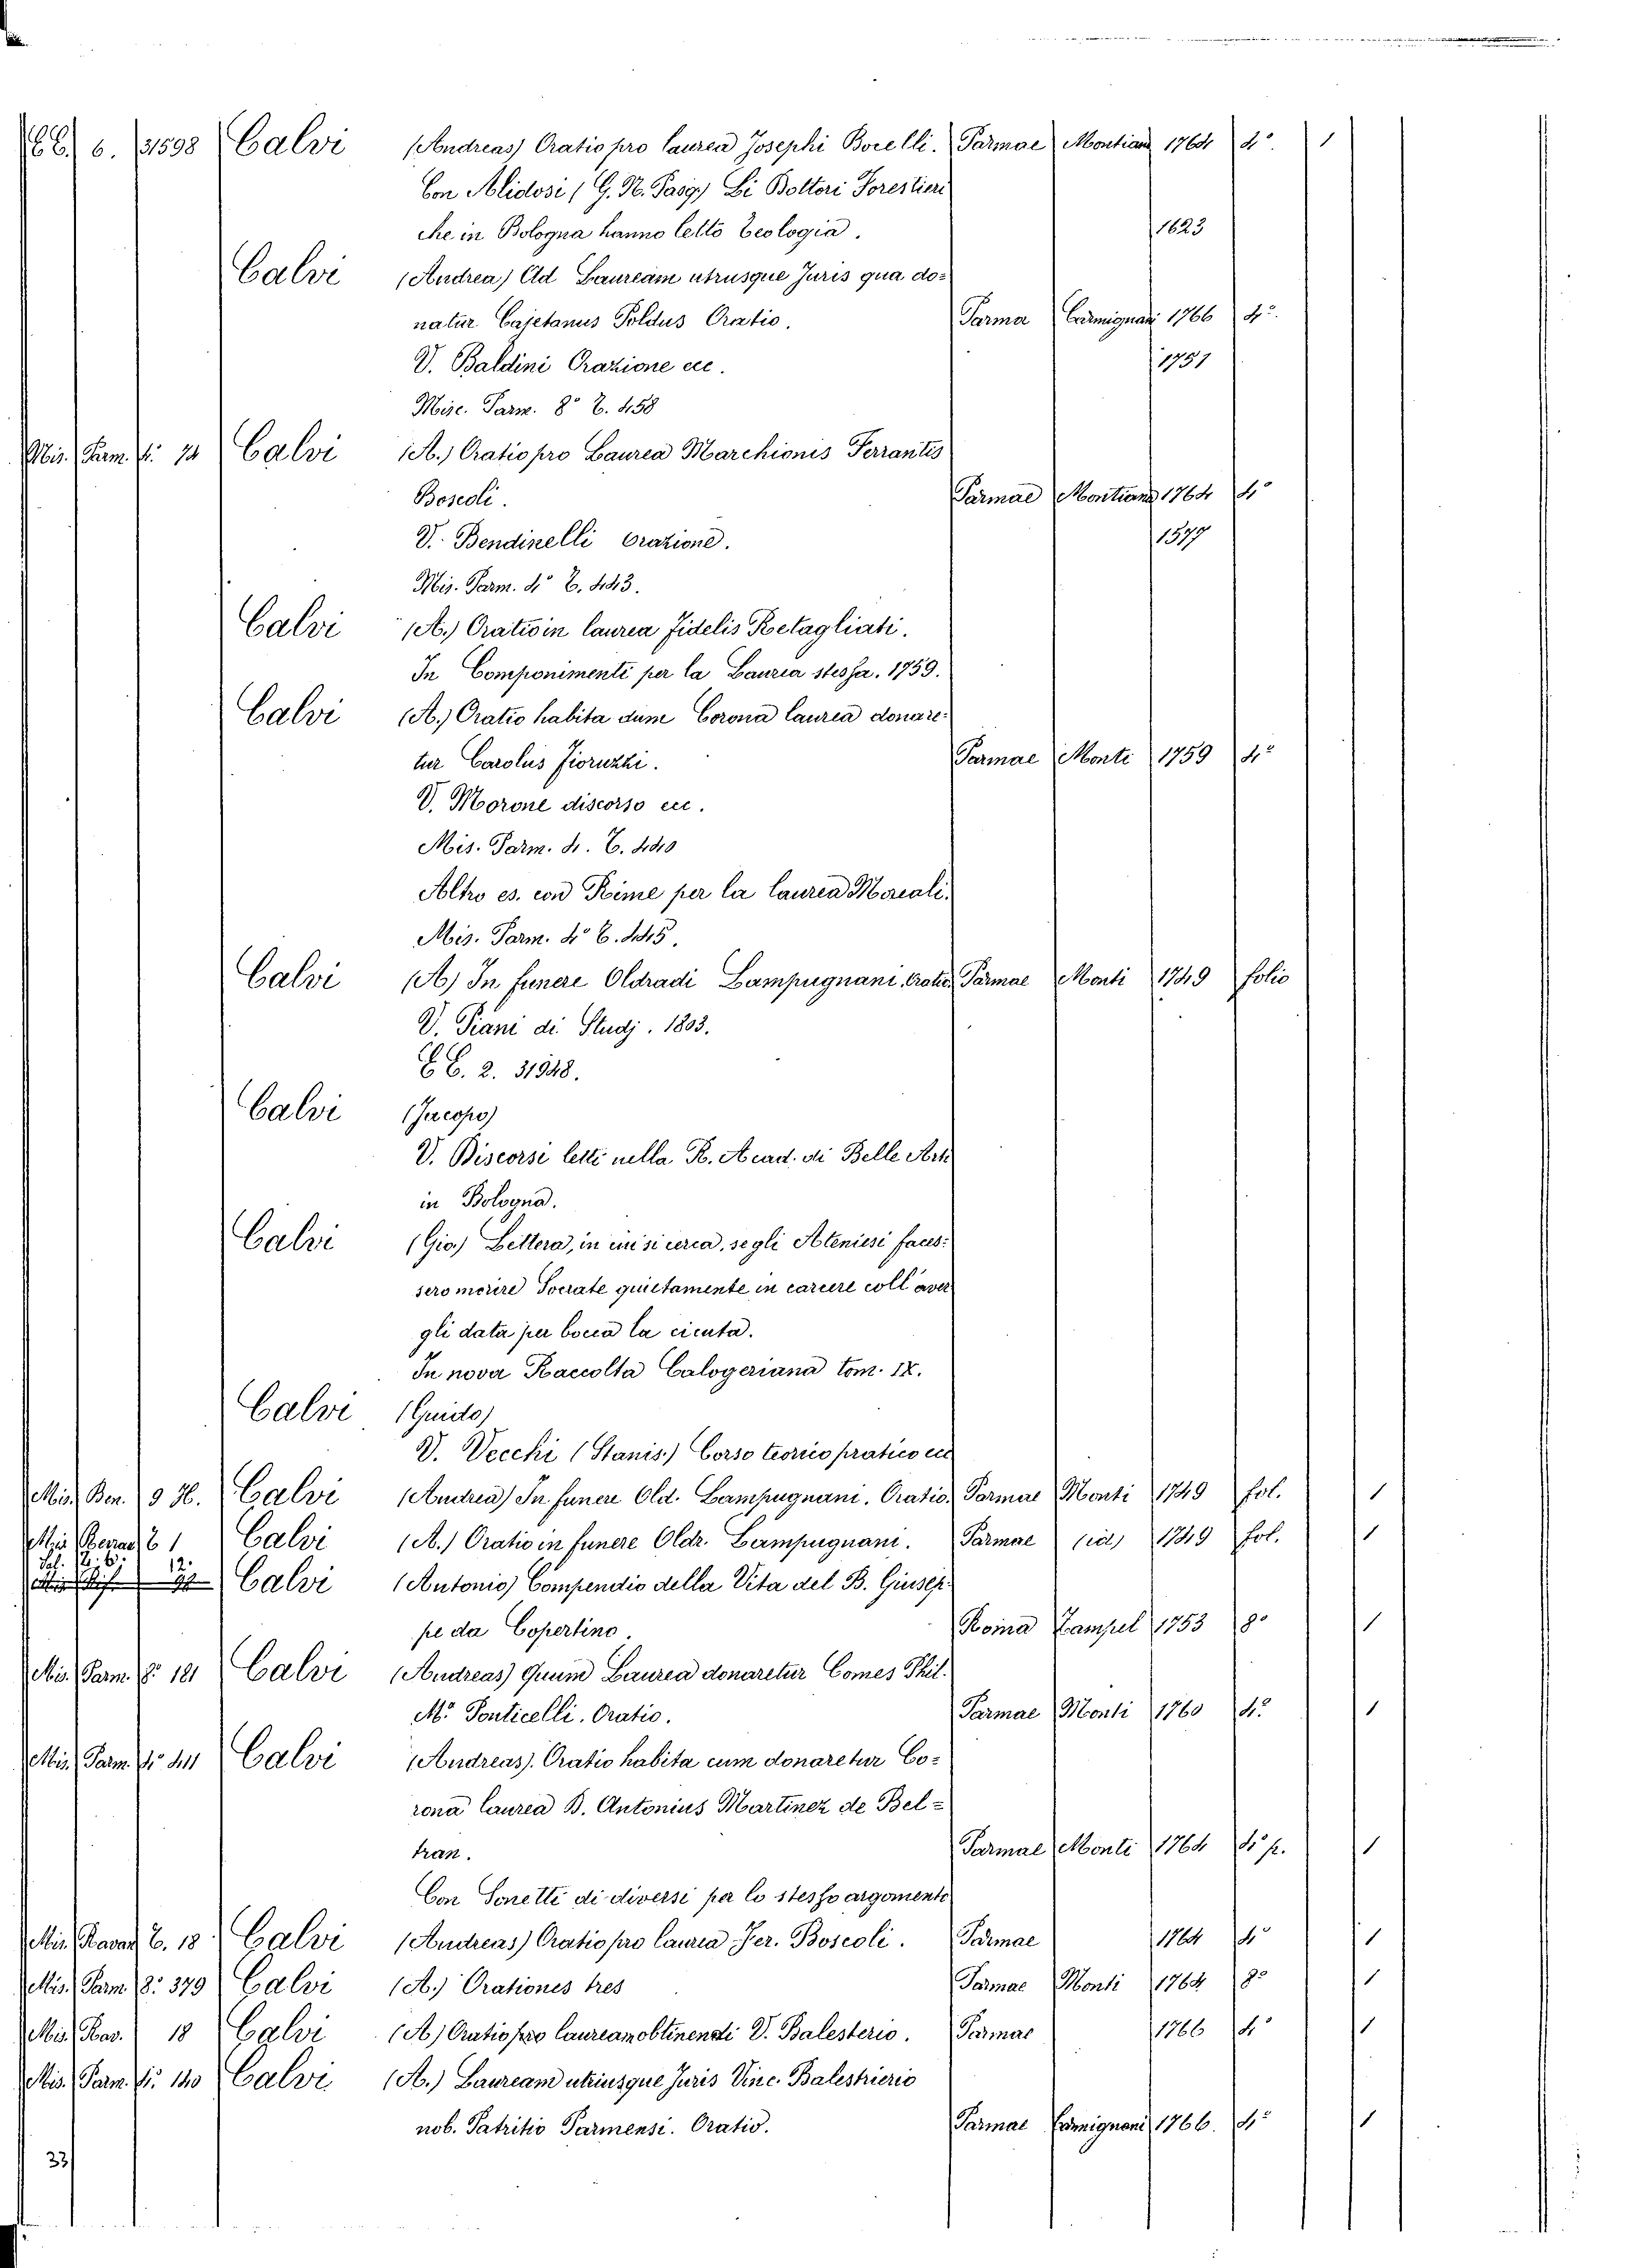 6. 31598 Calvi (Andreas) Oratio pro laurea Josephi Borelli. Parmae Montian 1764 4° 1
Con Alidosi (G. N. Pasq.) Li Dottori Forestieri
che in Bologna hanno letto Teologia. 1623
Calvi (Andrea) Ad Lauream utrusque Juris qua do=
natur Cajetanus Poldus Oratio. Parma Carmignani 1766 4°.
V. Baldini Orazione ec. 1757
Misc. Parm. 8° T. 458
Mis. Parm. 4° 74 Calvi (A.) Oratio pro Laurea Marchionis Ferrantis
Boscoli. Parmae Montiana 1764 4°
V. Bendinelli Orazione. 1577
Mis. Parm. 4° T. 443.
Calvi (A.) Oratio in laurea Fidelis Retagliati.
In Componimenti per la Laurea stessa. 1759.
Calvi (A.) Oratio habita dum Corona laurea donare-
tur Carolus Fioruzzi. Parmae Monti 1759 4°
V. Morone discorso ec.
Mis. Parm. 4. T. 440
Altro es. con Rime per la laurea Moreali.
Mis. Parm. 4° T. 445.
Calvi (A) In funere Oldradi Lampugnani. Oratio Parmae Monti 1749 folio
V. Piani di Studj. 1803.
2. 31948.
Calvi (Jacopo)
V. Discorsi letti nella R. Accad. di Belle Arti
in Bologna.
Calvi (Gio.) Lettera, in cui si cerca, se gli Ateniesi faces-
sero morire Socrate quietamente in carcere coll'aver
gli data per bocca la cicuta.
In nova Raccolta Calogeriana tom. IX.
Calvi (Guido)
V. Vecchi (Stanis.) Corso teorico pratico ec
Mis. Ben. 9 H. Calvi (Andrea) In funere Old. Lampugnani. Oratio. Parmae Monti 1749 fol. 1
Mis. T 1 Calvi (A.) Oratio in funere Oldr. Lampugnani. Parmae 1749 fol. 1
12. Calvi (Antonio) Compendio della Vita del B. Giusep-
pe da Copertino. Roma Zampel 1753 8° 1
Mis. Parm. 8° 121 Calvi (Andreas) Quum Laurea donaretur Comes Phil.
M.a Ponticelli. Oratio. Parmae Monti 1760 4° 1
Mis. Parm. 4° 411 Calvi (Andreas). Oratio habita cum donaretur Co=
rona laurea D. Antonius Martinez de Bel=
tran. Parmae Monti 1764 4° p. 1
Con Sonetti di diversi per lo stesso argomento
Mis. Ravar T. 18 Calvi (Andreas) Oratio pro laurea Fer. Boscoli. Parmae 1764 4° 1
Mis. Parm. 8° 379 Calvi (A.) Orationes tres Parmae Monti 1764 8° 1
Mis. Rav. 18 Calvi (A) Oratio pro laurea obtinendi V. Balesterio. Parmae 1766 4° 1
Mis. Parm. 4° 140 Calvi (A.) Lauream utriusque Juris Vinc. Balestrierio
nob. Patritio Parmensi. Oratio. Parmae Carmignani 1766. 4° 1
33